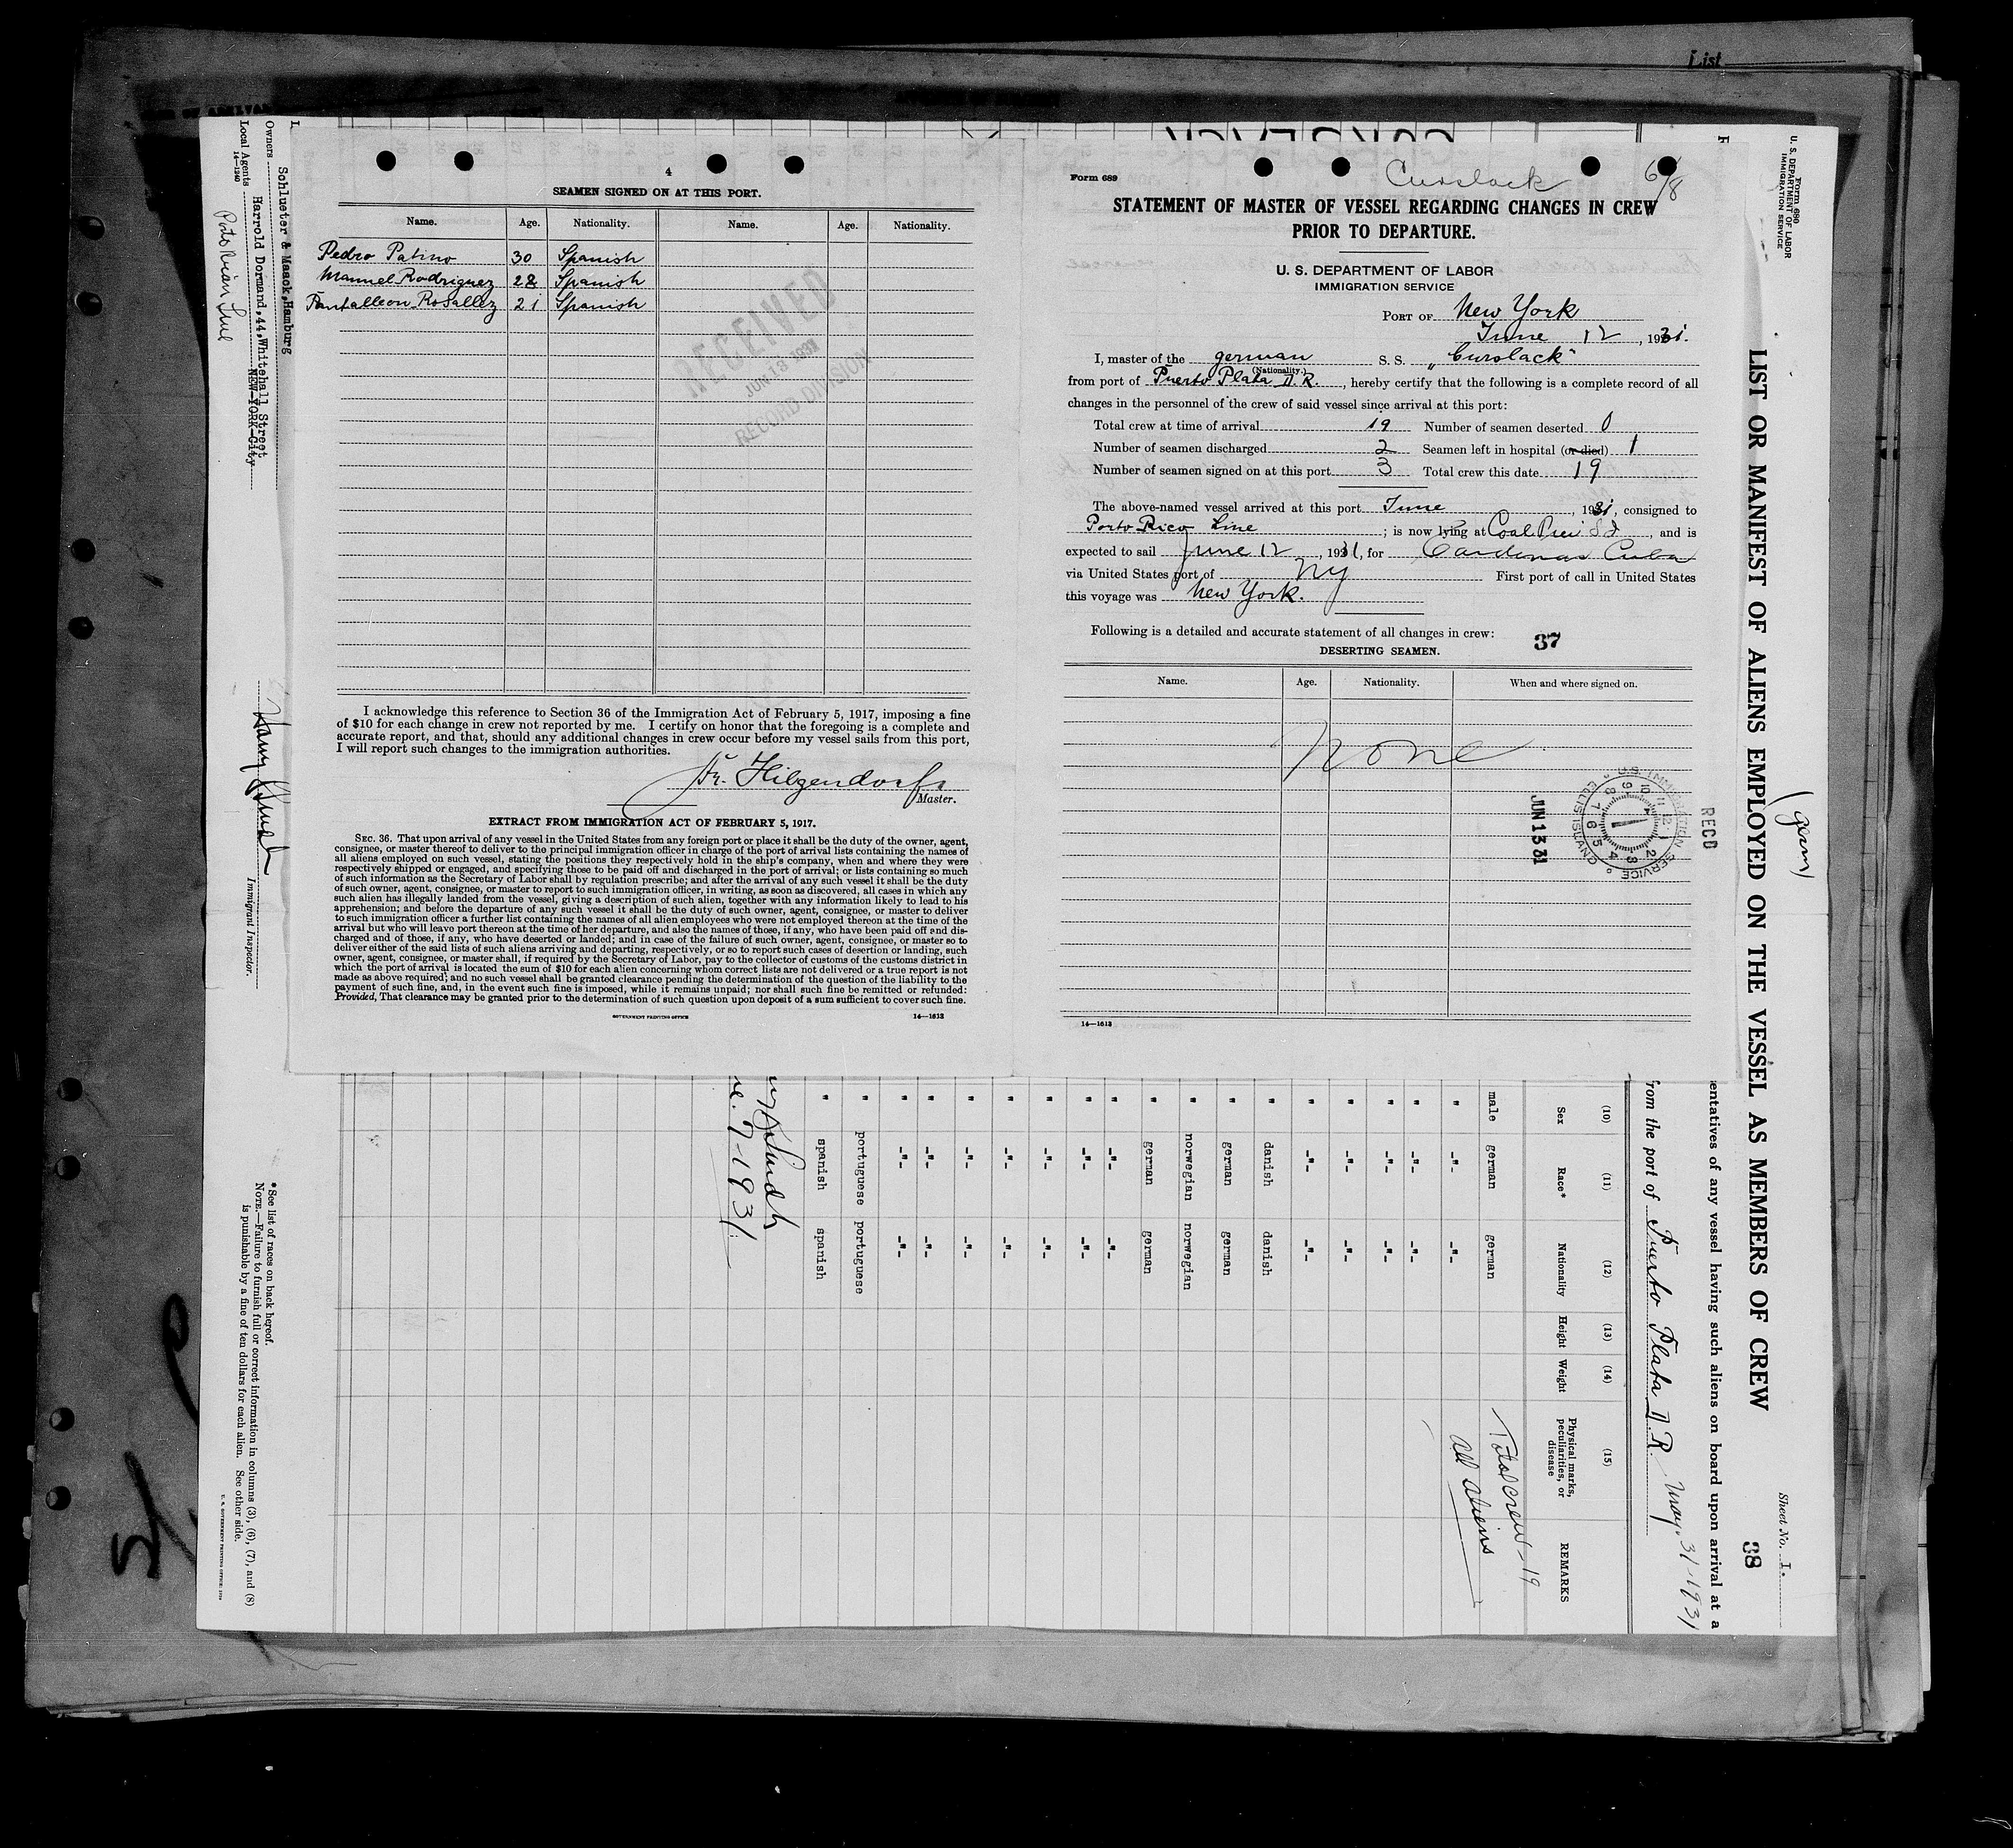 List
4
SEAMEN SIGNED ON AT THIS PORT.
Name. Age. Nationality. Name. Age. Nationality.
Pedro Patino 30 Spanish
Manuel Rodriguez 28 Spanish
Pantalleon Rosallez 21 Spanish
RECEIVED
JUN 13 1931
RECORD DIVISION
I acknowledge this reference to Section 36 of the Immigration Act of February 5, 1917, imposing a fine
of $10 for each change in crew not reported by me. I certify on honor that the foregoing is a complete and
accurate report, and that, should any additional changes in crew occur before my vessel sails from this port,
I will report such changes to the immigration authorities.
Fr. Hilgendorf
Master.
EXTRACT FROM IMMIGRATION ACT OF FEBRUARY 5, 1917.
SEC. 36. That upon arrival of any vessel in the United States from any foreign port or place it shall be the duty of the owner, agent,
consignee, or master thereof to deliver to the principal immigration officer in charge of the port of arrival lists containing the names of
all aliens employed on such vessel, stating the positions they respectively hold in the ship's company, when and where they were
respectively shipped or engaged, and specifying those to be paid off and discharged in the port of arrival; or lists containing so much
of such information as the Secretary of Labor shall by regulation prescribe; and after the arrival of any such vessel it shall be the duty
of such owner, agent, consignee, or master to report to such immigration officer, in writing, as soon as discovered, all cases in which any
such alien has illegally landed from the vessel, giving a description of such alien, together with any information likely to lead to his
apprehension; and before the departure of any such vessel it shall be the duty of such owner, agent, consignee, or master to deliver
to such immigration officer a further list containing the names of all alien employees who were not employed thereon at the time of the
arrival but who will leave port thereon at the time of her departure, and also the names of those, if any, who have been paid off and dis-
charged and of those, if any, who have deserted or landed; and in case of the failure of such owner, agent, consignee, or master so to
deliver either of the said lists of such aliens arriving and departing, respectively, or so to report such cases of desertion or landing, such
owner, agent, consignee, or master shall, if required by the Secretary of Labor, pay to the collector of customs of the customs district in
which the port of arrival is located the sum of $10 for each alien concerning whom correct lists are not delivered or a true report is not
made as above required; and no such vessel shall be granted clearance pending the determination of the question of the liability to the
payment of such fine, and, in the event such fine is imposed, while it remains unpaid; nor shall such fine be remitted or refunded:
Provided, That clearance may be granted prior to the determination of such question upon deposit of a sum sufficient to cover such fine.
GOVERNMENT PRINTING OFFICE 14—1613
Form 689
Curslack 6/8
STATEMENT OF MASTER OF VESSEL REGARDING CHANGES IN CREW
PRIOR TO DEPARTURE.
U. S. DEPARTMENT OF LABOR
IMMIGRATION SERVICE
PORT OF New York
June 12, 1931.
I, master of the german S. S. „Curslack"
(Nationality.)
from port of Puerto Plata D.R., hereby certify that the following is a complete record of all
changes in the personnel of the crew of said vessel since arrival at this port:
Total crew at time of arrival 19 Number of seamen deserted 0
Number of seamen discharged 2 Seamen left in hospital (or died) 1
Number of seamen signed on at this port 3 Total crew this date 19
The above-named vessel arrived at this port June, 1931, consigned to
Porto Rico Line; is now lying at Coal Pier, and is
expected to sail June 12, 1931, for Cardenas Cuba
via United States port of NY First port of call in United States
this voyage was New York.
Following is a detailed and accurate statement of all changes in crew: 37
DESERTING SEAMEN.
Name. Age. Nationality. When and where signed on.
None
RECD
U.S. IMMIGRATION SERVICE ELLIS ISLAND
JUN 13 31
14—1613
Form 680
U. S. DEPARTMENT OF LABOR
IMMIGRATION SERVICE
(germ)
Sheet No. 1.
LIST OR MANIFEST OF ALIENS EMPLOYED ON THE VESSEL AS MEMBERS OF CREW
38
entatives of any vessel having such aliens on board upon arrival at a
from the port of Puerto Plata D.R. May 31-1931
(10) (11) (12) (13) (14) (15)
Sex Race* Nationality Height Weight Physical marks, peculiarities, or disease REMARKS
male german german
" -"- -"-
" -"- -"-
" -"- -"-
" -"- -"-
" -"- -"-
" danish danish
" german german
" norwegian norwegian
" german german
" -"- -"-
" -"- -"-
" -"- -"-
" -"- -"-
" -"- -"-
" -"- -"-
" -"- -"-
" portuguese portuguese
" spanish spanish
Total crew - 19
all aliens
7-1931
Schlueter & Maack, Hamburg
Owners
Harrold Dormand, 44, Whitehall Street
NEW-YORK-City
Local Agents
14—1240
Porto Rican Line
Immigrant Inspector.
*See list of races on back hereof.
NOTE.—Failure to furnish full or correct information in columns (3), (6), (7), and (8)
is punishable by a fine of ten dollars for each alien. See other side.